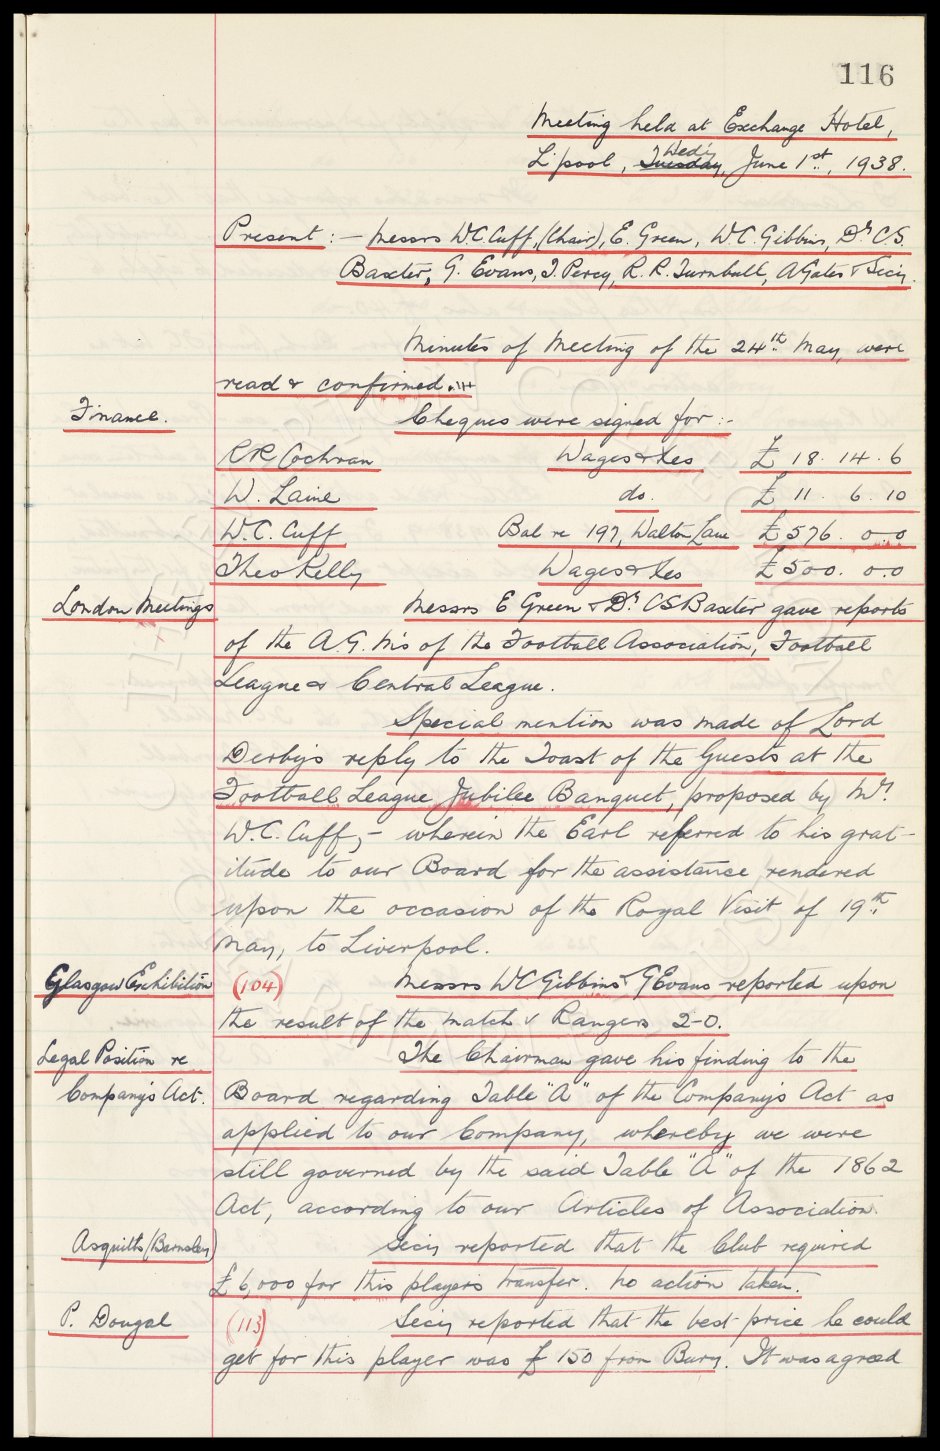 116
Meeting held at Exchange Hotel,
L'pool, Tuesday, Wed'y June 1st., 1938.
Present :- Messrs W.C. Cuff, (Chair), E. Green, W.C. Gibbins, Dr C.S.
Baxter, G. Evans, T. Percy, R.R. Turnbull, A Gates & Secy.
Minutes of Meeting of the 24th. May, were
read & confirmed.
Finance. Cheques were signed for :-
R R Cochran Wages & Xes £ 18. 14. 6
W. Laine do. £ 11. 6. 10
W.C. Cuff Bal re 197, Walton Lane £ 576. 0.0
Theo Kelly Wages & Xes £ 500. 0.0
London Meetings Messrs E Green & Dr. CS Baxter gave reports
of the A.G.M's of the Football Association, Football
League & Central League.
Special mention was made of Lord
Derby's reply to the Toast of the Guests at the
Football League Jubilee Banquet, proposed by Mr.
W.C. Cuff, - wherein the Earl referred to his grat-
itude to our Board for the assistance rendered
upon the occasion of the Royal Visit of 19th.
May, to Liverpool.
Glasgow Exhibition (104) Messrs WC Gibbins & G Evans reported upon
the result of the match v Rangers 2-0.
Legal Position re The Chairman gave his finding to the
Company's Act. Board regarding Table "A" of the Company's Act as
applied to our Company, whereby we were
still governed by the said Table "A" of the 1862
Act, according to our Articles of Association.
Asquith (Barnsley) Secy reported that the Club required
£6,000 for this player's transfer. No action taken.
P. Dougal (113) Secy reported that the best price he could
get for this player was £150 from Bury. It was agreed